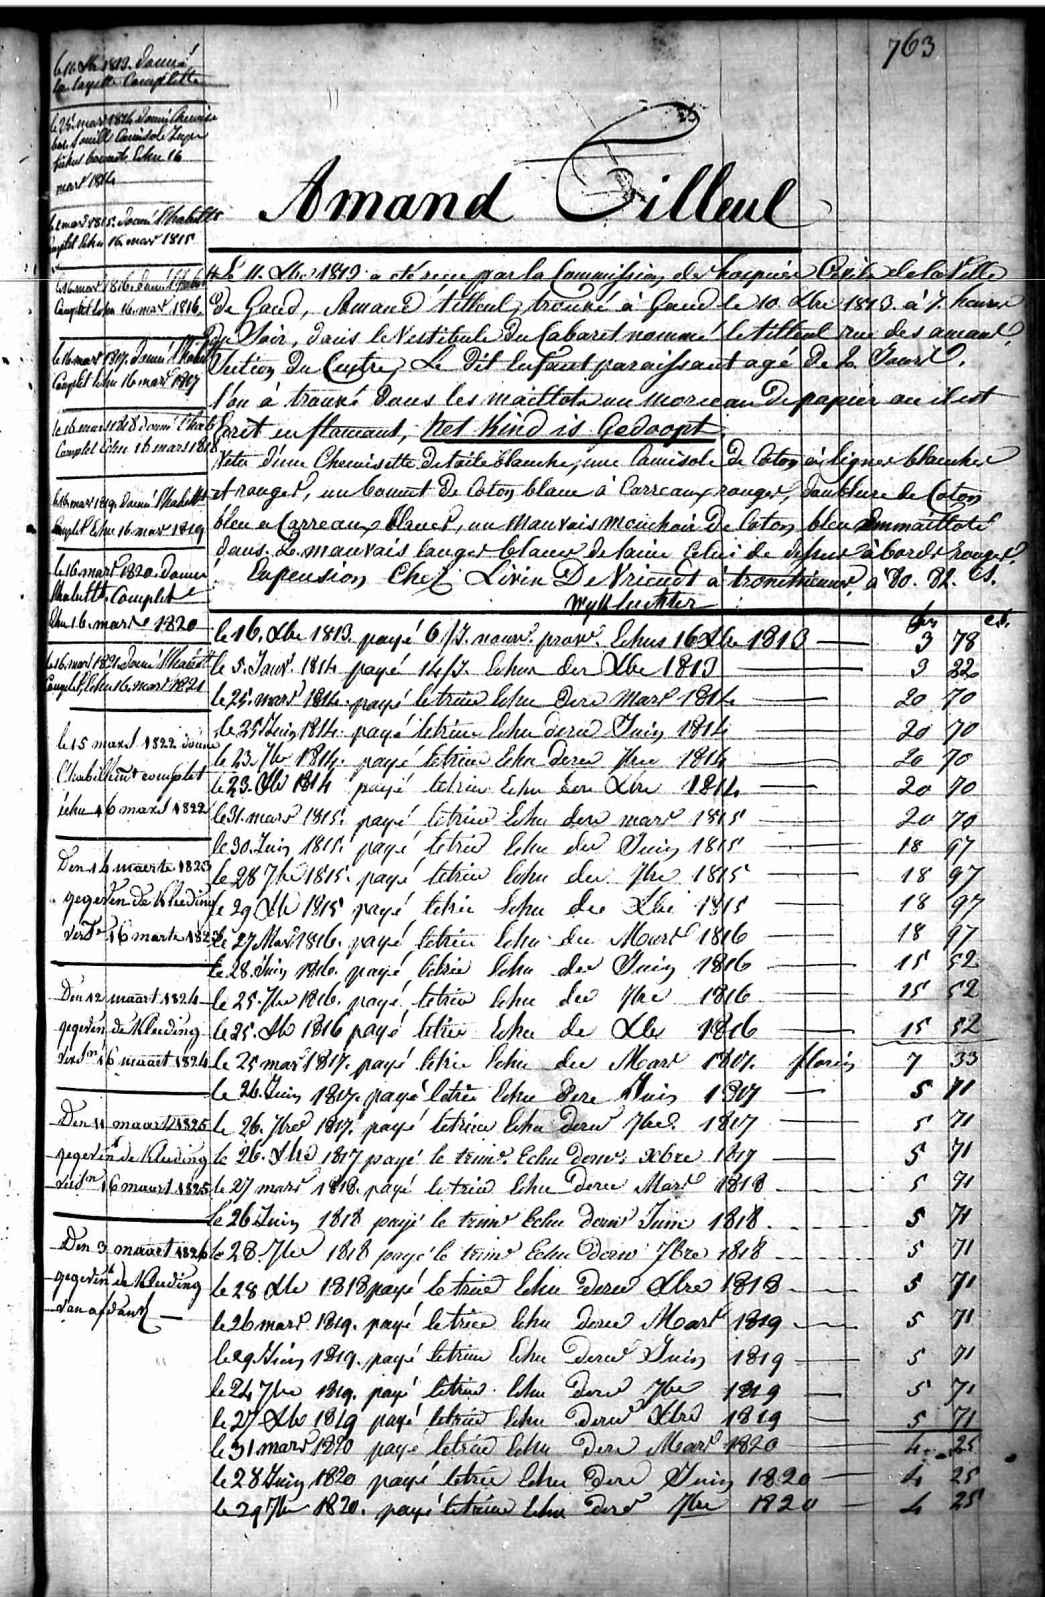 763
le 11. Xbre 1813. donné
la layette Complette
le 25 mars 1814 donné Chemise
bas Camisole Jupe
fichus bonnets Echu 16
mars 1814
le mars 1815. donné l'habillt
Complet Echu 16 mars 1815
le 16 mars 1816. donné l'habt
Complet Echu 16 mars 1816.
le 16 mars 1817. donné l'habt
Complet Echu 16 mars 1817
le 16 mars 1818 donné l'hab
Complet Echu 16 mars 1818
le 16 mars 1819. donné l'habillt
Complet Echu 16 mars 1819
le 16 mars 1820. donné
l'habillt. Complet
Echu 16. mars 1820
le 16 mars 1821. donné l'habillt
Complet, Echu 16. mars 1821
le 15 mars 1822 donné
l'habillemt complet
échu 16 mars 1822
Den 14 maerte 1823
gegeven de Kleeding
16 marte 1823
Den 12 maart 1824
gegeven de Kleeding
16 maart 1824
Den 11 maart 1825
gegeven de Kleeding
16 maart 1825
Den 3 maart 1826
gegeven de Kleeding
Amand Tilleul
Le 11. Xbre 1813 a été reçu par la Commission des hospices Civils de la Ville
de Gand, Amand tilleul, trouvé à Gand le 10. Xbre 1813. à 7. heures
du Soir, dans le Vestibule du Cabaret nommé le tilleul rue des amans,
Section du Centre, Le dit Enfant paraissant agé de 2. Jours.
l'on à trouvé dans les maillots un morceau de papier ou il est
Ecrit en flamand, het Kind is Gedoopt.
Vetu d'une Chemisette de toile blanche, une Camisole de Coton à lignes blanches
et rouges, un bonnet de Coton blanc à Carreaux rouges, doublure de Coton
bleu a Carreaux blancs, un Mauvais mouchoir de Coton bleu Emmaillotté
dans 2. mauvais langes blancs de laine Celui de dessus à bords rouges.
En pension Chez Livin De Vriendt à tronchiennes, à 80. 82. Cs.
frs cs.
le 16. Xbre 1813. payé 6/7. nourr. prov. Echus 16 Xbre 1813 3 78
le 5. Janv. 1814 payé 14/7. Echus der Xbre 1813 3 22
le 25. mars 1814. payé letrim Echu dere mars 1814 20 70
le 25 Juin 1814. payé letrim Echu derer Juin 1814 20 70
le 23. 7bre 1814. payé letrim Echu derer 7bre 1814 20 70
le 23. Xbre 1814 payé letrim Echu der Xbre 1814 20 70
le 31. mars 1815. payé letrim Echu dere mars 1815 20 70
le 30. Juin 1815. payé letrim Echu der Juin 1815 18 97
le 28 7bre 1815. payé letrim Echu der 7bre 1815 18 97
le 29 Xbre 1815 payé letrim Echu der Xbre 1815 18 97
le 27 Mars 1816. payé, letrim Echu der Mars 1816 18 97
le 28. Juin 1816. payé, letrim Echu der Juin 1816 15 52
le 25. 7bre 1816. payé, letrim Echu der 7bre 1816 15 52
le 25. Xbre 1816 payé letrim Echu de Xbre 1816 15 52
le 25 mars 1817. payé letrim Echu der Mars 1817. florins 7 33
le 26. Juin 1817. payé letrim Echu dere Juin 1817 5 71
le 26. 7bre 1817. payé letrim Echu derer 7bre 1817 5 71
le 26. Xbre 1817 payé le trim. Echu dernr: xbre 1817 5 71
le 27 mars 1818. payé letrim Echu derer Mars 1818 5 71
le 26 Juin 1818 payé le trimr Echu dernr Juin 1818. 5 71
le 28. 7bre 1818 payé le trimr Echu dernr 7bre 1818 5 71
le 28 Xbre 1818 payé le trim Echu derer Xbre 1818 5 71
le 26 mars. 1819. payé letrim Echu derer Mars 1819 5 71
le 29 Juin 1819. payé letrim Echu derer Juin 1819 5 71
le 24 7bre 1819. payé letrim. Echu derer 7bre 1819 5 71
le 27 Xbre 1819 payé letrim Echu derer Xbre 1819 5 71
le 31 mars 1820 payé letrim Echu dere Mars 1820 4 25
le 28 Juin 1820 payé letrim Echu dere Juin 1820 4 25
le 29 7bre 1820. payé letrim Echu dere 7bre 1820 4 25